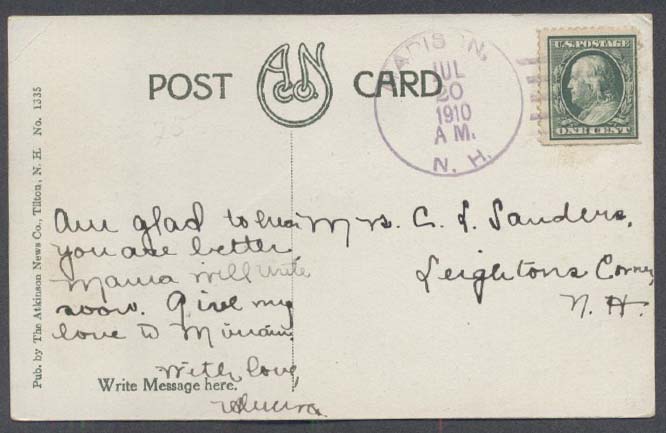 POST CARD
A N Co.
MADISON,
JUL
20
1910
A M.
N. H.
U.S. POSTAGE
ONE CENT
Pub. by The Atkinson News Co., Tilton, N. H. No. 1335
Am glad to hear
you are better,
Mama will write
soon. Give my
love to Miriam.
With love,
Write Message here.
Mrs. C. S. Sanders,
Leightons Corner,
N. H.